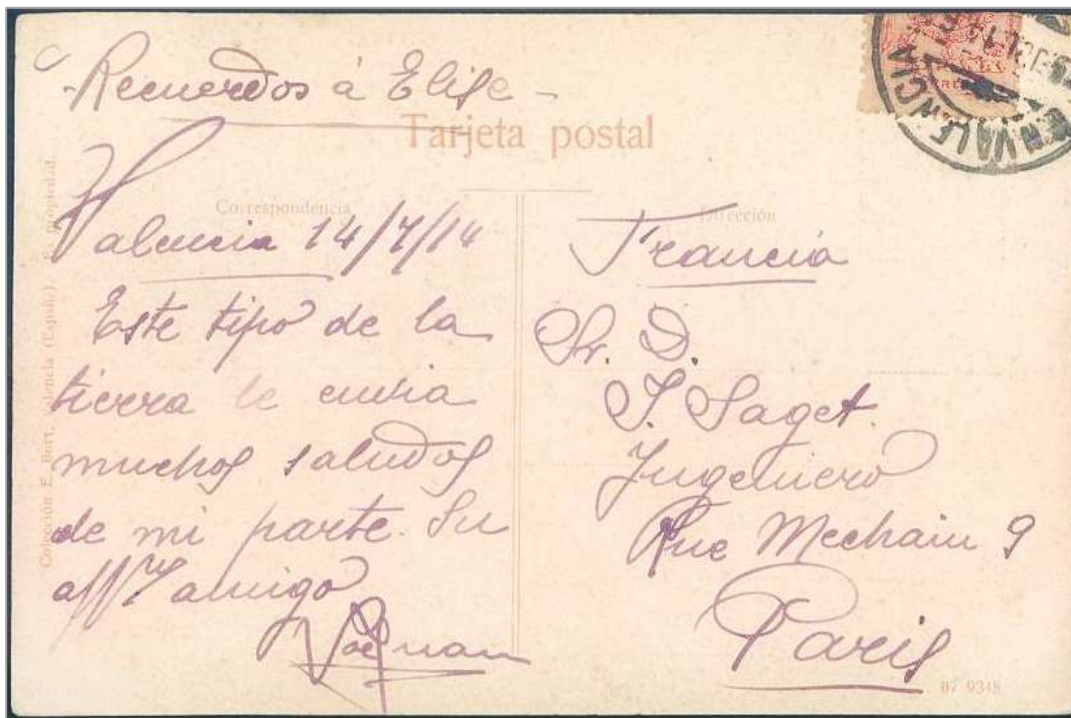 - Recuerdos á Elise -
Tarjeta postal
Correspondencia
Valencia 14/7/14
Este tipo de la
tierra le envia
muchos saludos
de mi parte. Su
amigo
Dirección
Francia
Sr. D.
J. Saget
Ingeniero
Rue Mechain 9
Paris
07 9348
Colección E. Bort, Valencia (España). Es propiedad.
VALENCIA